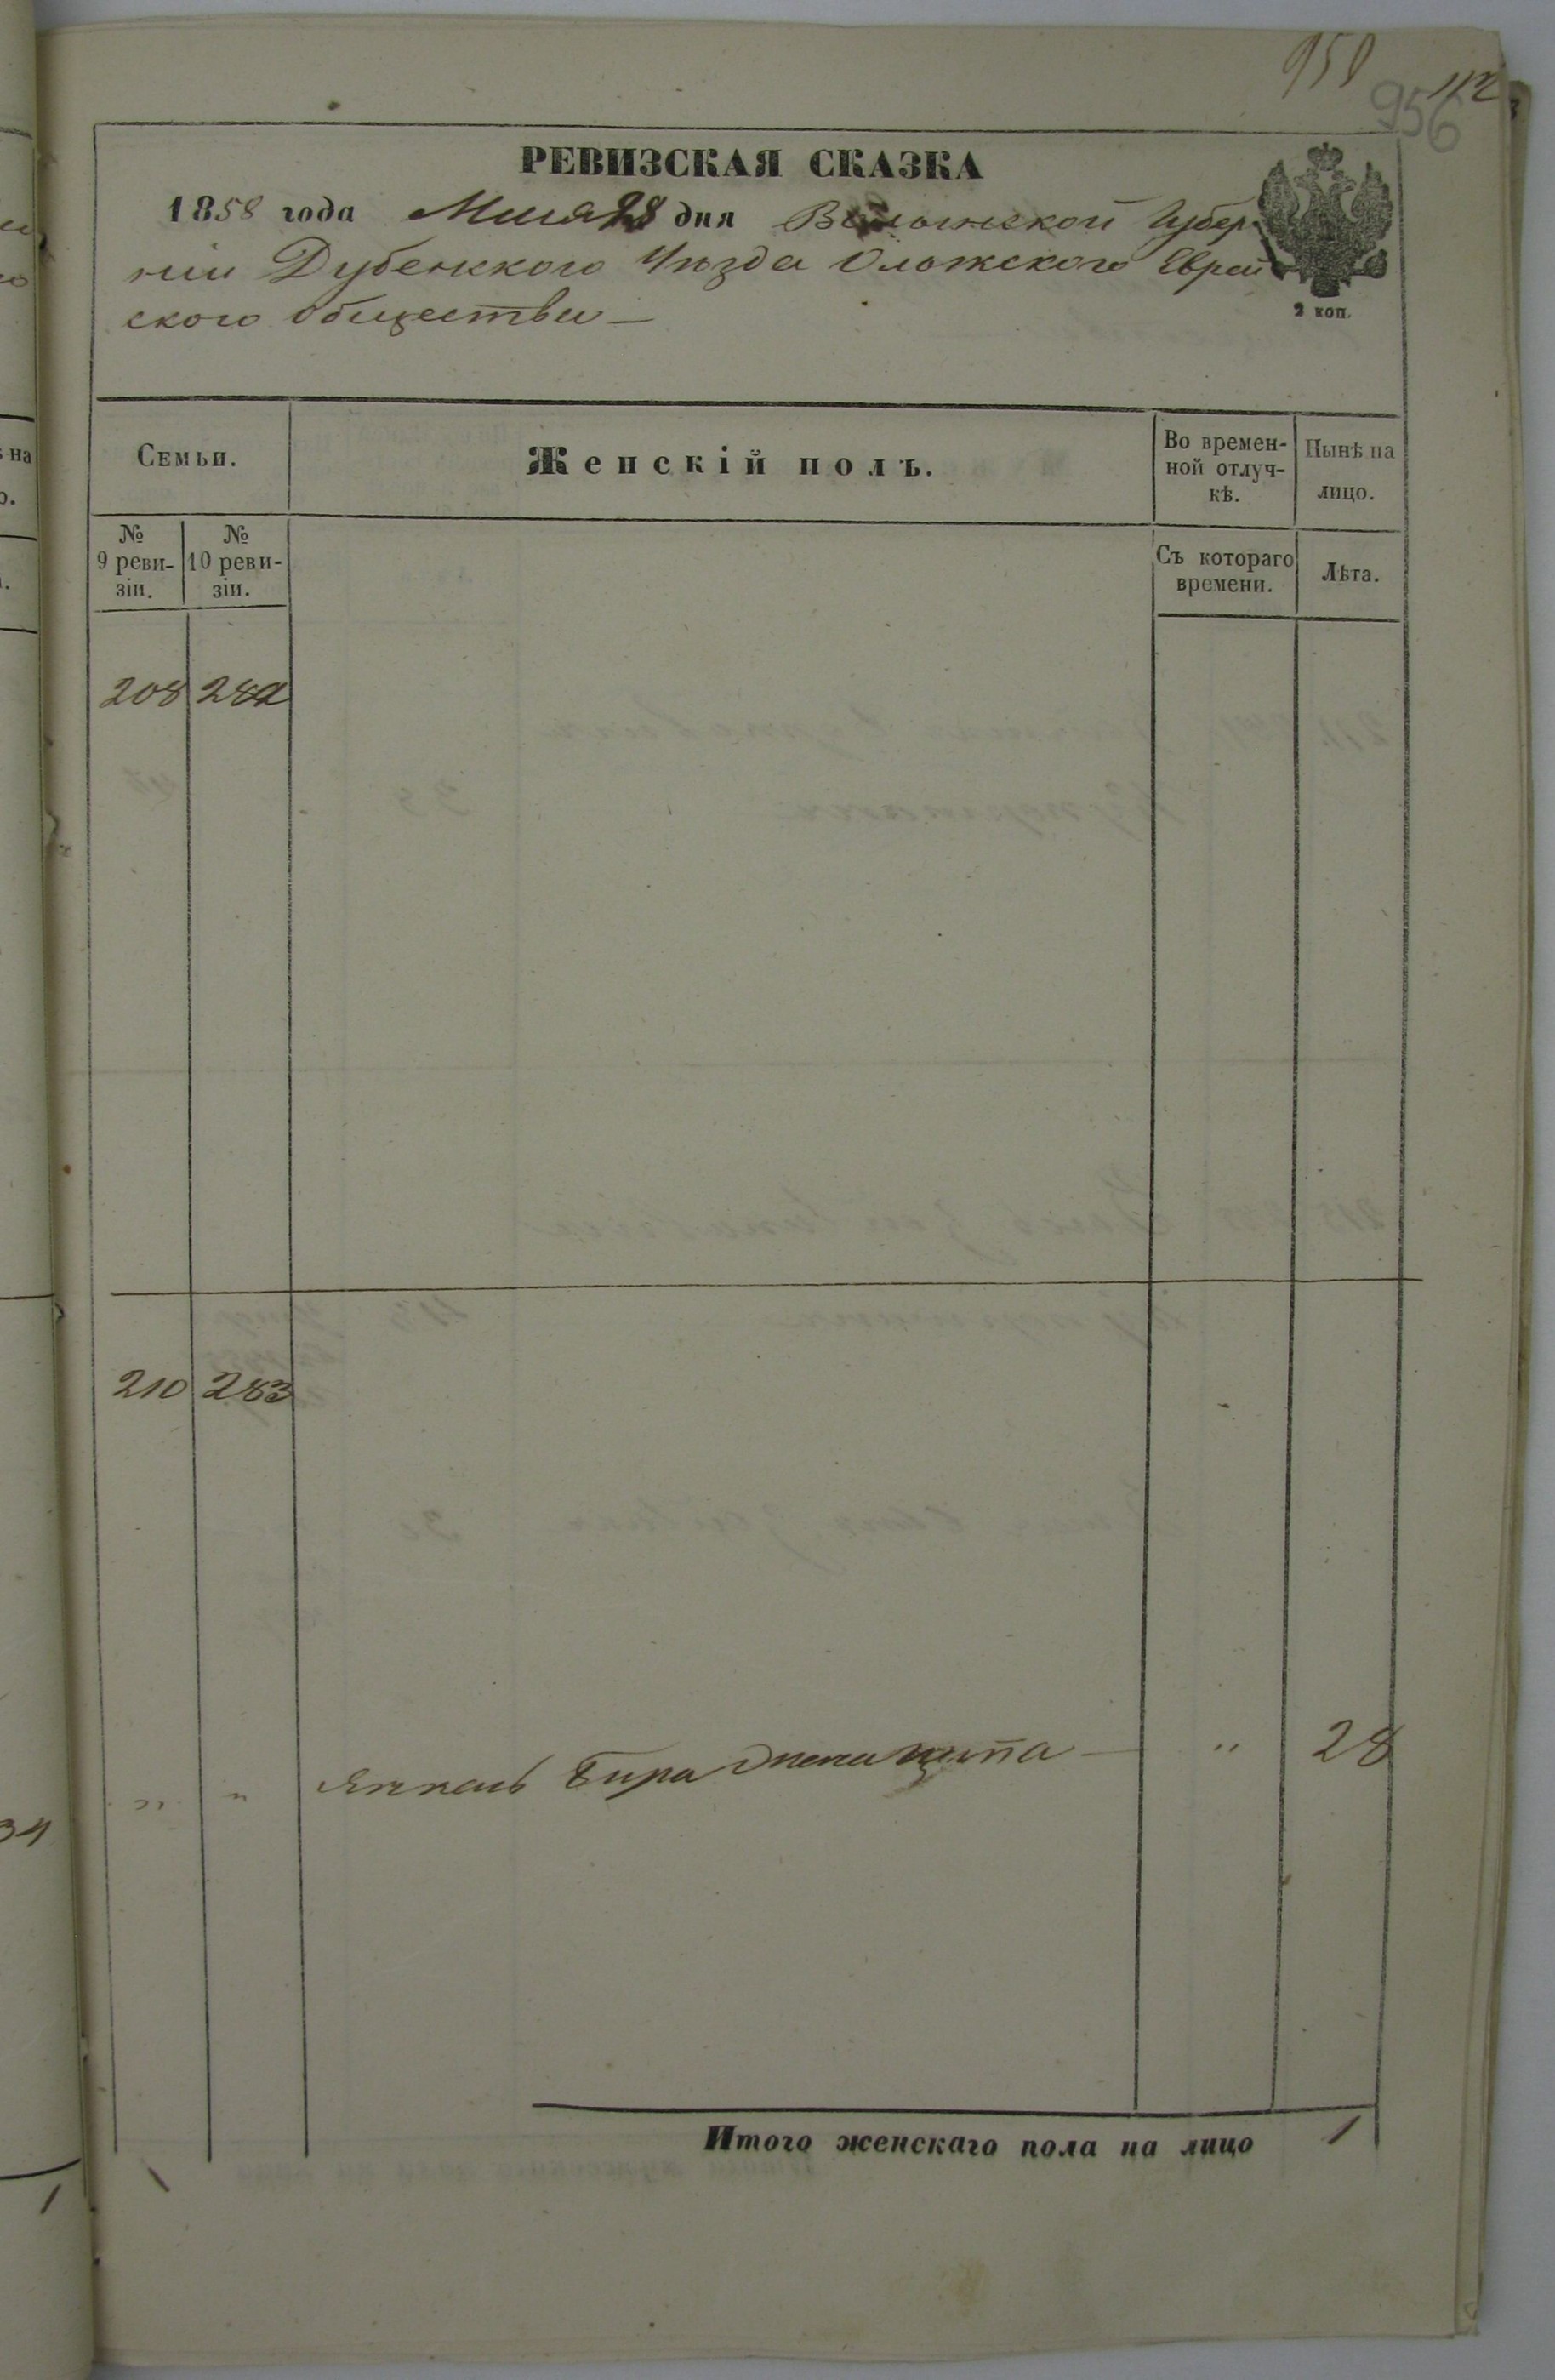 958
956
112
РЕВИЗСКАЯ СКАЗКА
1858 года Мая 28 дня Волынской Губер
ніи Дубенского Уѣзда Оложского Еврей
ского Общества —
2 коп.
Семьи.
Женскій полъ.
Во времен-
ной отлуч-
кѣ.
Нынѣ на
лицо.
№
9 реви-
зіи.
№
10 реви-
зіи.
Съ котораго
времени.
Лѣта.
208 282
210 283
„ „ жена — „ 28
Итого женскаго пола на лицо 1
34